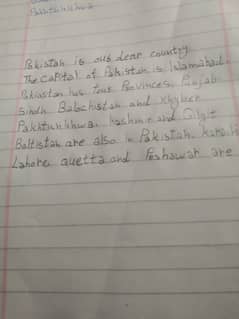 Pakistan is our dear country.
The capital of Pakistan is Islamabad.
Pakistan has four Provinces, Punjab
Sindh, Balochistan and Khyber
Pakhtunkhwa. Kashmir and Gilgit
Baltistan are also in Pakistan. Karachi
Lahore, Quetta and Peshawar are